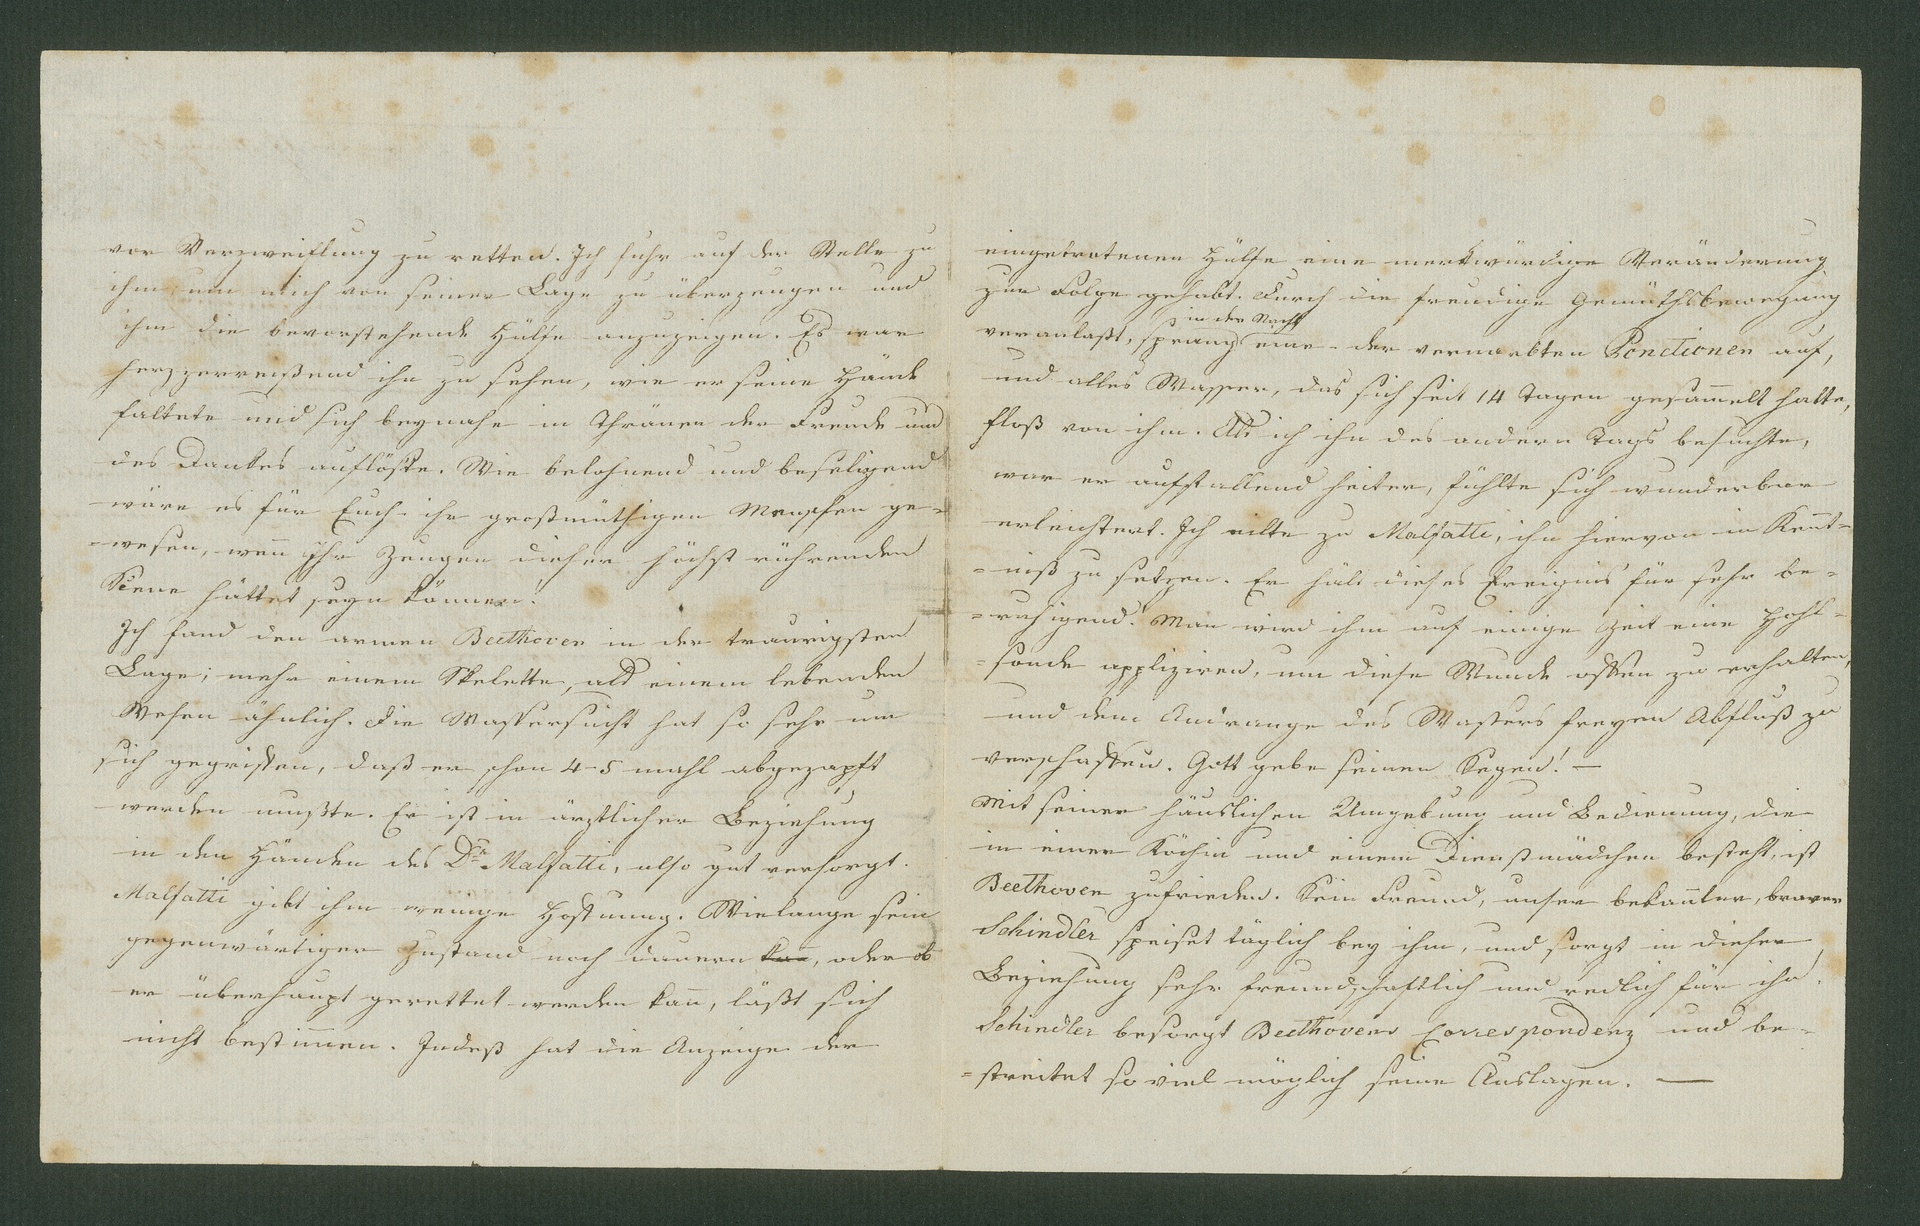 vor Verzweiflung zu retten. Ich fuhr auf der Stelle zu
ihm, um mich von seiner Lage zu überzeugen und
ihm die bevorstehende Hülfe anzuzeigen. Es war
herzzerreißend ihn zu sehen, wie er seine Hände
faltete und sich beynahe in Thränen der Freude und
des Dankes auflöste. Wie belohnend und beseligend
wäre es für Euch ihr großmüthigen Menschen ge-
-wesen, wenn Ihr Zeugen dieser höchst rührenden
Scene hättet seyn können.
Ich fand den armen Beethoven in der traurigsten
Lage; mehr einem Skelette, als einem lebenden
Wesen ähnlich. Die Wassersucht hat so sehr um
sich gegriffen, daß er schon 4-5 mahl abgezapft
werden mußte. Er ist in ärztlicher Beziehung
in den Händen des Dr. Malfatti, also gut versorgt.
Malfatti gibt ihm wenige Hoffnung. Wielange sein
gegenwärtiger Zustand noch dauern kann, oder ob
er überhaupt gerettet werden kann, läßt sich
nicht bestimmen. Indeß hat die Anzeige der
eingetretenen Hülfe eine merkwürdige Veränderung
zur Folge gehabt. Durch die freudige Gemüthsbewegung
in der Nacht
veranlaßt, sprang eine der vernarbten Ponctionen auf,
und alles Wasser, das sich seit 14 Tagen gesammelt hatte,
floß von ihm. Als ich ihn des andern Tags besuchte,
war er auffallend heiter, fühlte sich wunderbar
erleichtert. Ich eilte zu Malfatti, ihn hiervon in Kennt-
-niß zu setzen. Er hält dieses Ereignis für sehr be-
-ruhigend. Man wird ihm auf einige Zeit eine Hohl-
-sonde appliziren, um diese Wunde offen zu erhalten,
und dem Andrange des Wassers freyen Abfluß zu
verschaffen. Gott gebe seinen Segen! —
Mit seiner häuslichen Umgebung und Bedienung, die
in einer Köchin und einem Dienstmädchen besteht, ist
Beethoven zufrieden. Sein Freund, unser bekannter, braver
Schindler speiset täglich bey ihm, und sorgt in dieser
Beziehung sehr freundschaftlich und redlich für ihn.
Schindler besorgt Beethovens Correspondenz und be-
-streitet so viel möglich seine Auslagen. —